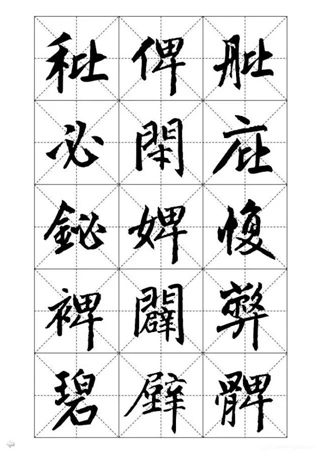 秕 俾 舭
必 閉 庇
鉍 婢 愎
裨 闢 弊
碧 髀